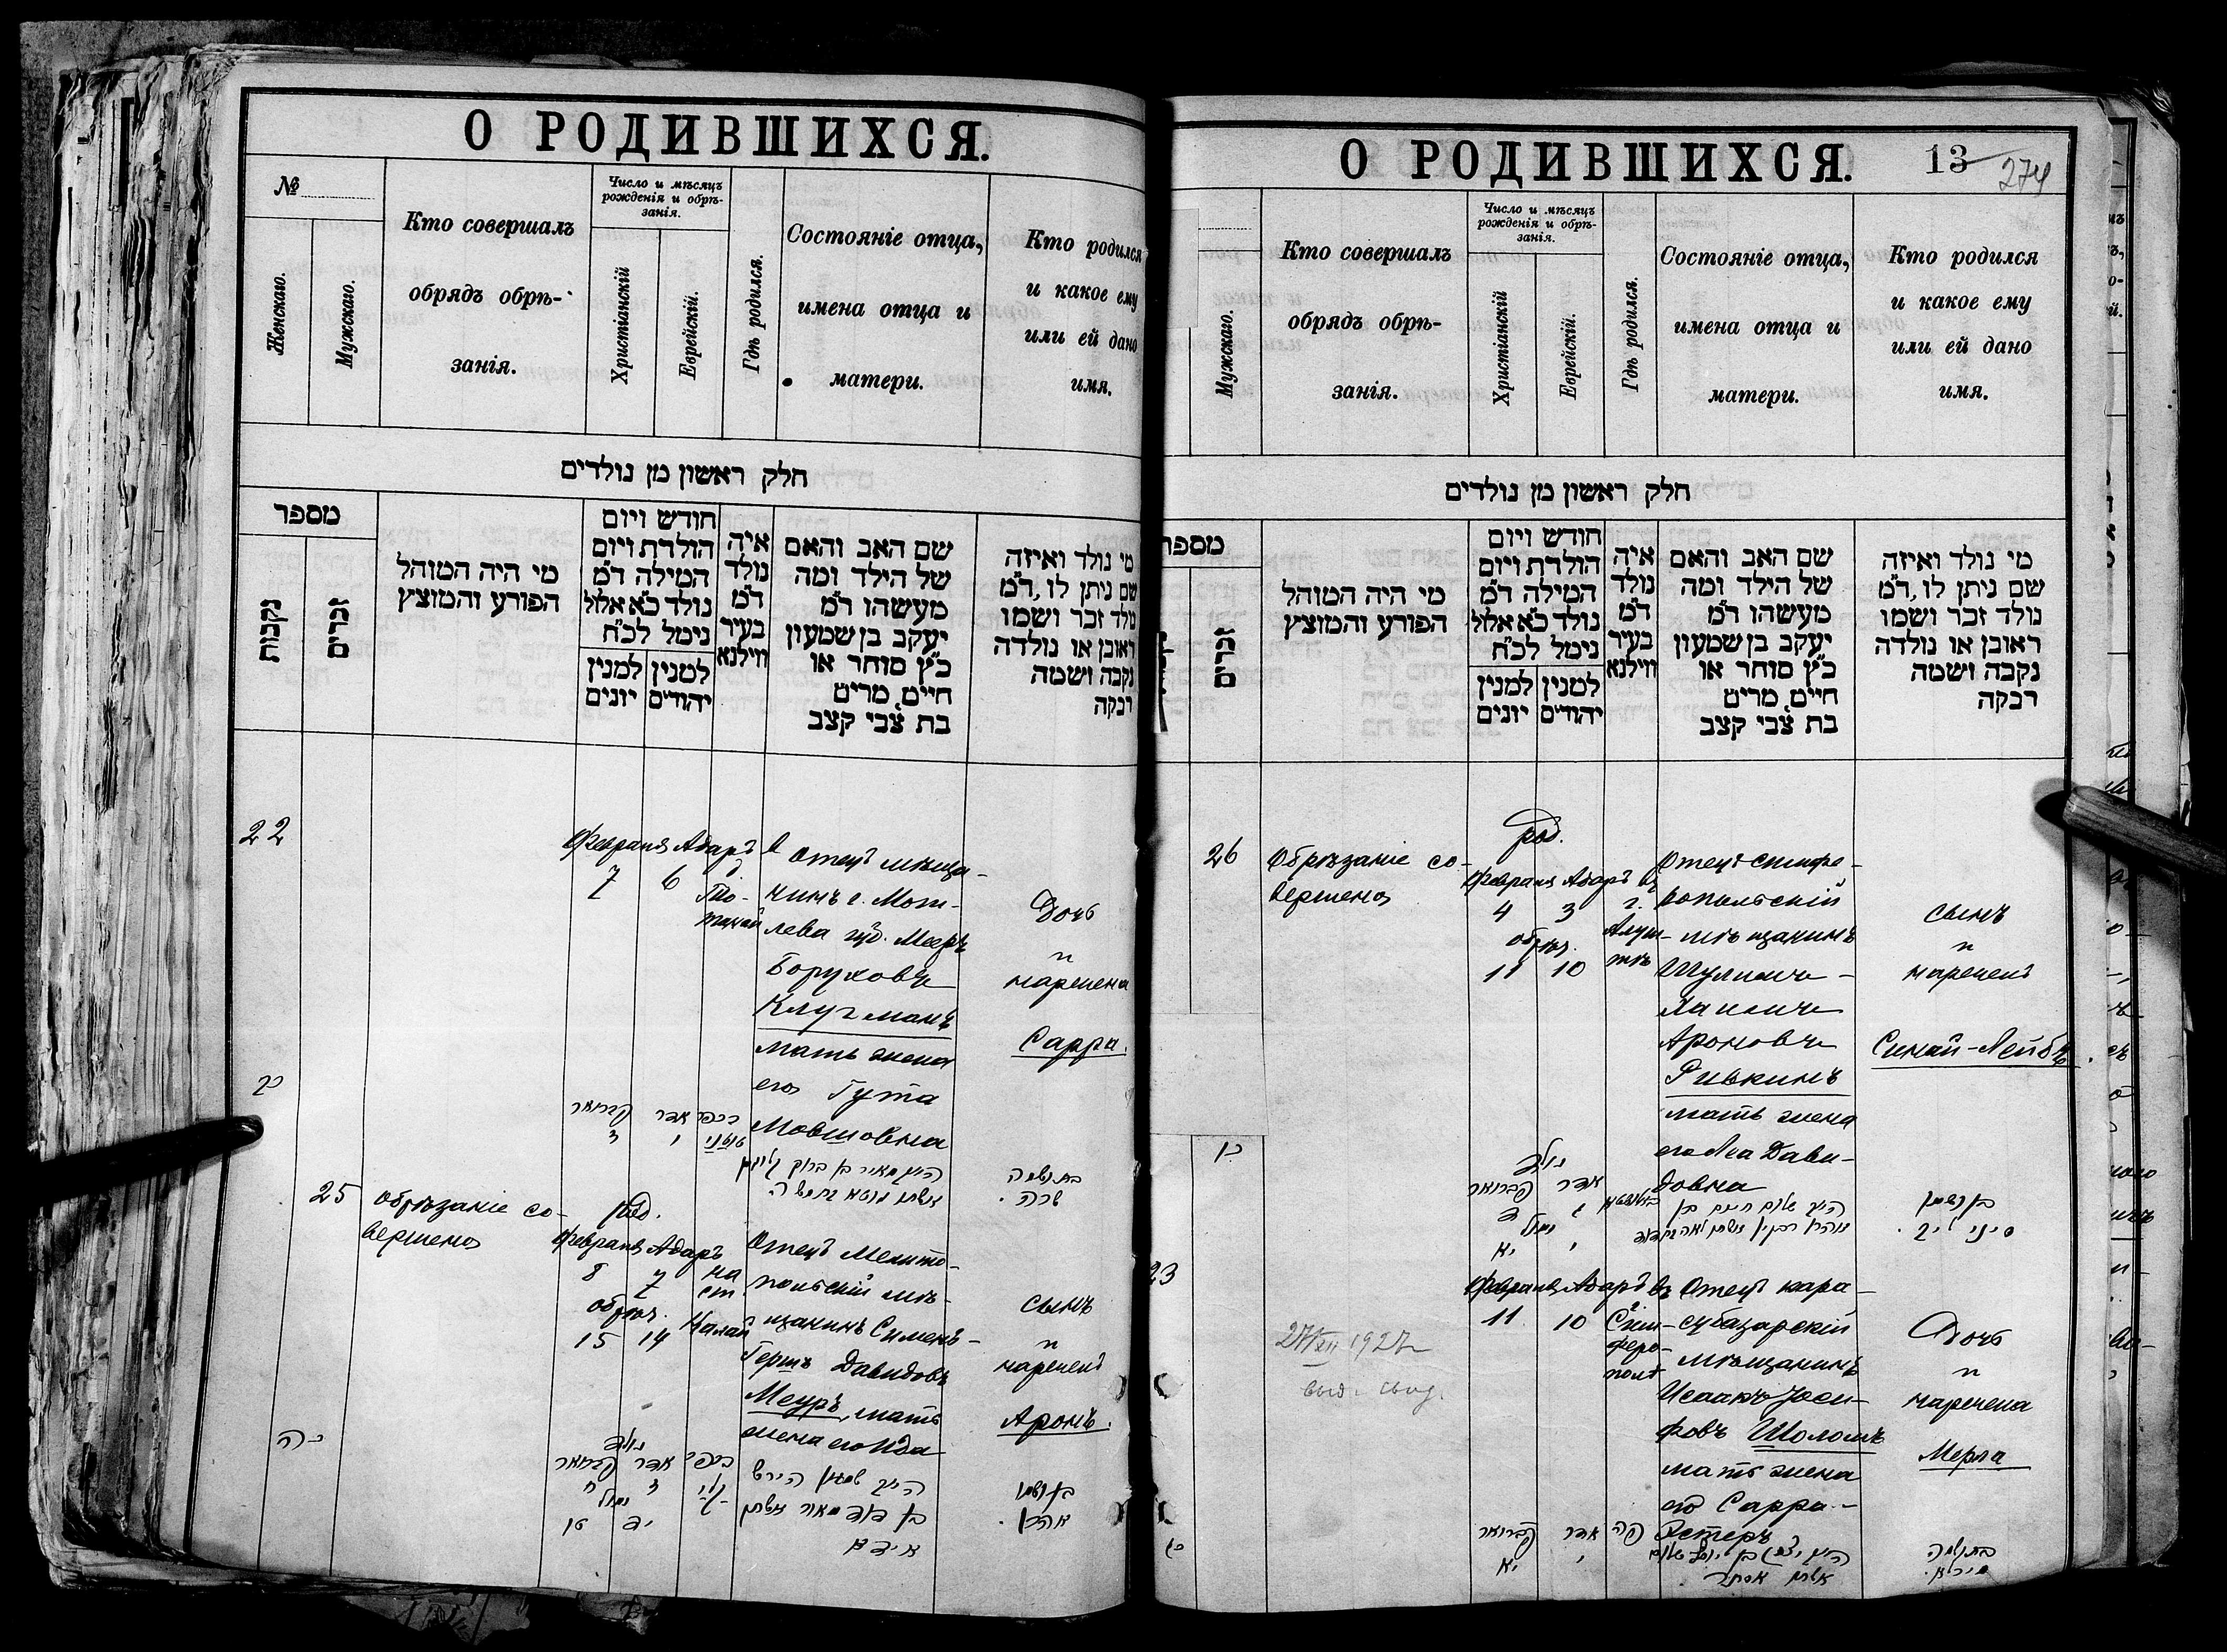 О РОДИВШИХСЯ.
№
Женскаго.
Мужскаго.
Кто совершалъ
обрядъ обрѣ-
занія.
Число и мѣсяцъ
рожденія и обрѣ-
занія.
Христіанскій
Еврейскій.
Гдѣ родился.
Состояніе отца,
имена отца и
матери.
Кто родился
и какое ему
или ей дано
имя.
חלק ראשון מן נולדים
מספר
נקבות
זכרים
מי היה המוהל
הפורע והמוצץ
חודש ויום
הולדת ויום
המילה ד״מ
נולד כ״א אלול
נימל לכ״ח
למנין יהודים
למנין יונים
איה
נולד
ד״מ
בעיר
ווילנא
שם האב והאם
של הילד ומה
מעשהו ד״מ
יעקב בן שמעון
כ״ץ סוחר או
חיים, מרים
בת צבי קצב
מי נולד ואיזה
שם ניתן לו, ד״מ
נולד זכר ושמו
ראובן או נולדה
נקבה ושמה
רבקה
22
Февраля Адаръ
7 6
Отецъ мѣща-
нинъ г. Моги-
лева губ. Мееръ
Боруховъ
Клугманъ
мать жена
его Гута
Мовшовна
Дочь
и
наречена
Сарра.
כב
פברואר אדר
ז ו
שרה.
25
Обрѣзаніе со-
вершено
род.
Февраля Адаръ
8 7
обрѣз.
15 14
на
ст.
Отецъ Мелито-
польскій мѣ-
щанинъ Сименъ-
Гершъ Давидовъ
Меуръ, мать
жена его Ида
сынъ
и
нареченъ
Аронъ.
כה
נולד
פברואר אדר
ח ז
נמול
טו יד
אידא
אהרן.
О РОДИВШИХСЯ.
13
274
Мужскаго.
Кто совершалъ
обрядъ обрѣ-
занія.
Число и мѣсяцъ
рожденія и обрѣ-
занія.
Христіанскій
Еврейскій.
Гдѣ родился.
Состояніе отца,
имена отца и
матери.
Кто родился
и какое ему
или ей дано
имя.
חלק ראשון מן נולדים
מספר
זכרים
מי היה המוהל
הפורע והמוצץ
חודש ויום
הולדת ויום
המילה ד״מ
נולד כ״א אלול
נימל לכ״ח
למנין יהודים
למנין יונים
איה
נולד
ד״מ
בעיר
ווילנא
שם האב והאם
של הילד ומה
מעשהו ד״מ
יעקב בן שמעון
כ״ץ סוחר או
חיים, מרים
בת צבי קצב
מי נולד ואיזה
שם ניתן לו, ד״מ
נולד זכר ושמו
ראובן או נולדה
נקבה ושמה
רבקה
26
Обрѣзаніе со-
вершено
род.
Февраля Адаръ
4 3
обрѣз.
11 10
въ
г.
Алуш-
тѣ
Отецъ симфе-
ропольскій
мѣщанинъ
Шулимъ-
Хаимъ
Ароновъ
Ривкинъ
мать жена
его Лея Дави-
довна
сынъ
и
нареченъ
Синай-Лейбъ.
נולד
פברואר אדר
ד ג
נמול
יא י
סיני ליב.
23
Февраля Адаръ
11 10
въ
г.
Сим-
феро-
полѣ
Отецъ кара-
субазарскій
мѣщанинъ
Исаакъ Іоси-
фовъ Шоломъ
мать жена
его Сарра-
Эстеръ
Дочь
и
наречена
Мерла
27/XII 1927
פברואר אדר פה
יא י